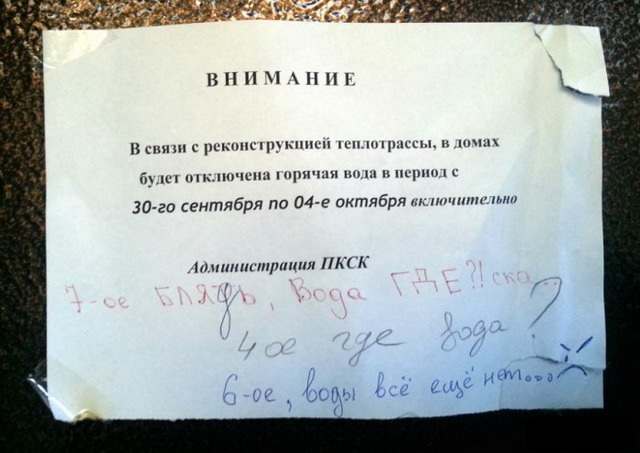 ВНИМАНИЕ
В связи с реконструкцией теплотрассы, в домах
будет отключена горячая вода в период с
30-го сентября по 04-е октября включительно
Администрация ПКСК
7-ое БЛЯДЬ, Вода ГДЕ?! ска...
4ое где вода?
6-ое, воды всё ещё нет...